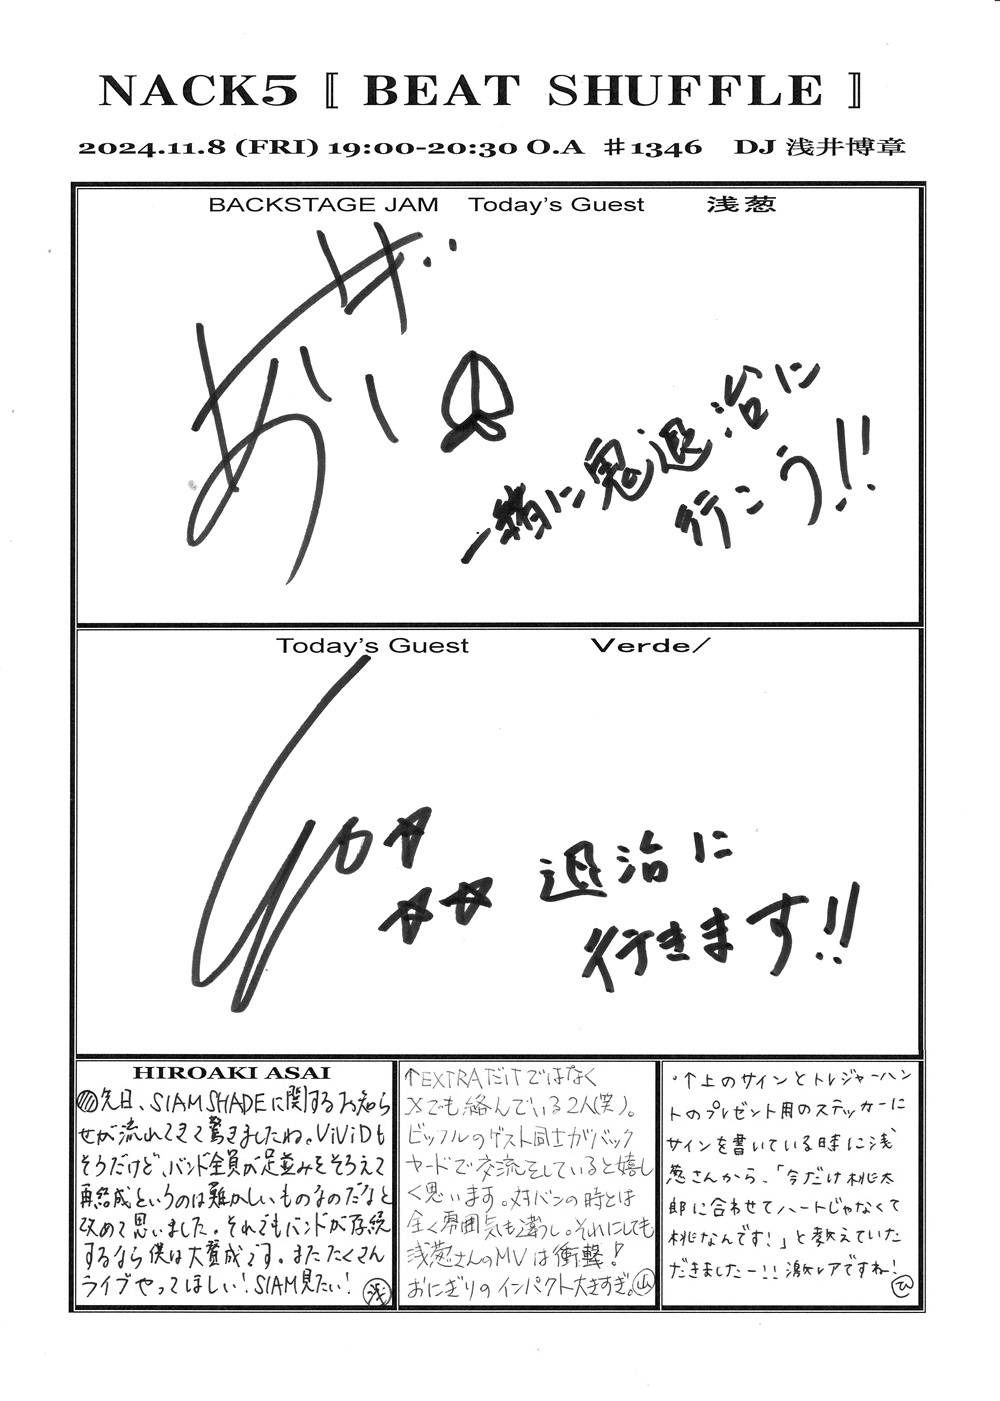 NACK5 『 BEAT SHUFFLE 』
2024.11.8 (FRI) 19:00-20:30 O.A ♯1346 DJ 浅井博章
BACKSTAGE JAM Today's Guest 浅葱
あさぎ
一緒に鬼退治に
行こう!!
Today's Guest Verde/
退治に
行きます!!
HIROAKI ASAI
先日、SIAM SHADEに関するお知ら
せが流れてきて驚きましたね。ViViDも
そうだけど、バンド全員が足並みをそろえて
再結成というのは難かしいものなのだなと
改めて思いました。それでもバンドが存続
するなら僕は大賛成です。またたくさん
ライブやってほしい!SIAM見たい! 浅
↑EXTRAだけではなく
Xでも絡んでいる2人(笑)。
ビッフルのゲスト同士がバック
ヤードで交流をしていると嬉し
く思います。対バンの時とは
全く雰囲気も違うし。それにしても
浅葱さんのMVは衝撃!
おにぎりのインパクト大きすぎ。山
・↑上のサインとトレジャーハン
トのプレゼント用のステッカーに
サインを書いている時に浅
葱さんから、「今だけ桃太
郎に合わせてハートじゃなくて
桃なんです!」と教えていた
だきましたー!!激レアですね! ひ